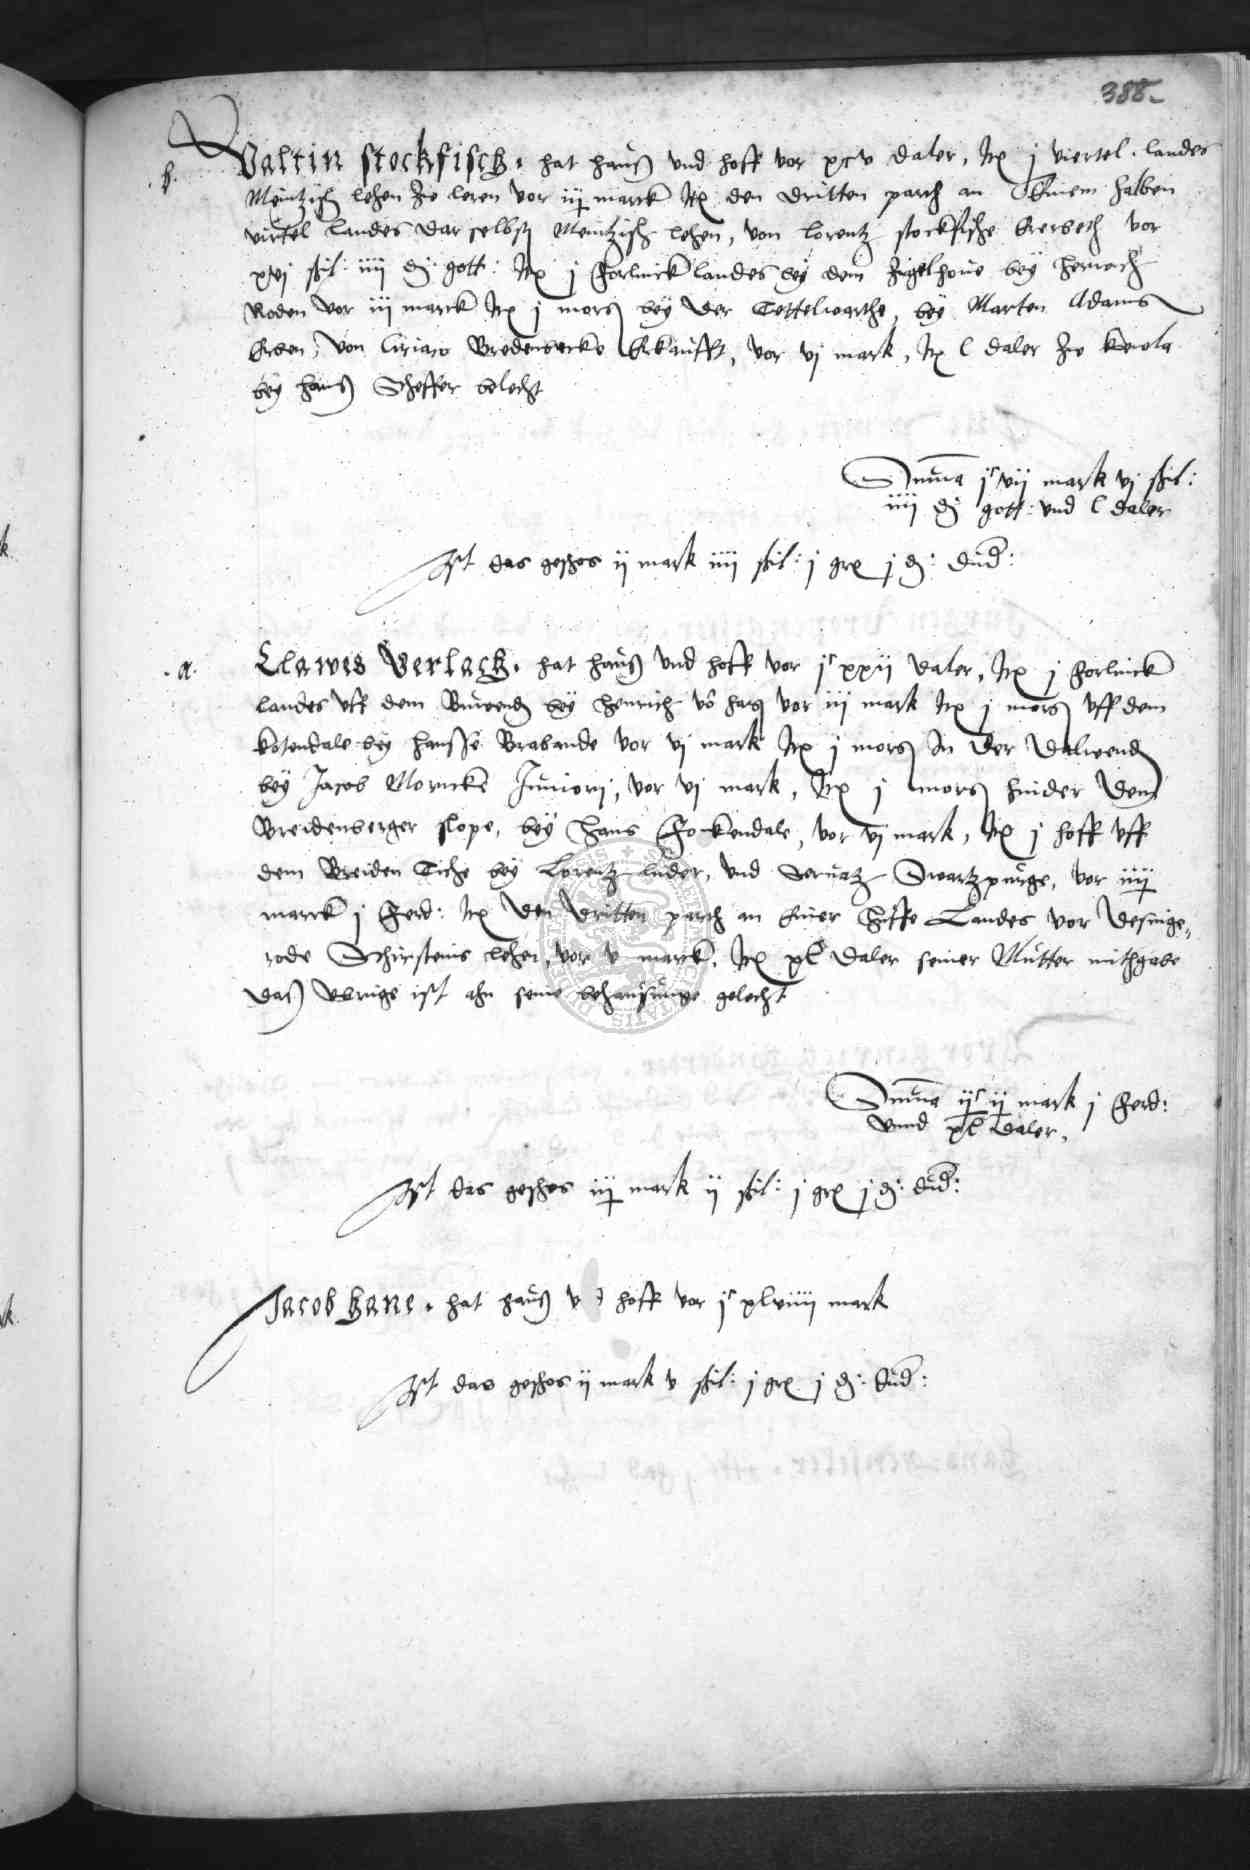 388.
b. Valtin Stockfisch. hat hauß vnd hoff vor xcv daler, Itē j viertel landes
Meintzisch lehen Zu leren vor iij marck Itē den dritten parth an Einem halben
virtel landes dar selbst Meintzisch lehen, von Lorentz Stockfische Ererbeth vor
xvj ßkil: iiij d: gott: Itē j Forlinck landes bey dem Zigelhoue bey Henrich
Roden vor iij marck Itē j morg bey der Tettelwarthe, bey Marten Adams
Erben, von Ciriaco Bredenbecke Erkaufft, vor vj mark, Itē l daler Zu
bey hanß Scheffer belecht
Summa jc vij mark vj ßkil:
iiij d: gott: vnd l daler
Ist das geschos ij mark iiij ßkil: j gr j d: dud:
a. Clawes Gerlach. hat hauß vnd hoff vor jc xxij daler, Itē j Forlinck
landes vff dem bey Henrich vō hag vor iij mark Itē j morg vff dem
Kotendale bey Hansse Brabande vor vj mark Itē j morg In der
bey Jacob Mornicke Juniori, vor vj mark, Itē j morg hinder dem
Breidenberger slope, bey Hans Fockendale, vor vj mark, Itē j hoff vff
dem Breiden Tiche bey Lorentz luder, vnd Seruatz Swartzpurge, vor iiij
marck j Ferd: Itē den dritten parth an Einer Huffe Landes vor Desinge-
rode Schirsteins lehen, vor v marck, Itē xl daler seiner Mutter mithgabe
daß vbrige ist ahn seine behausunge gelecht
Summa ijc ij mark j Ferd:
vnnd xl daler,
Ist das geschos iij mark ij ßkil: j gr j d: dud:
Jacob Hane. hat hauß vnd hoff vor jc xlviiij mark
Ist das geschos ij mark v ßkil: j gr j d: dud: